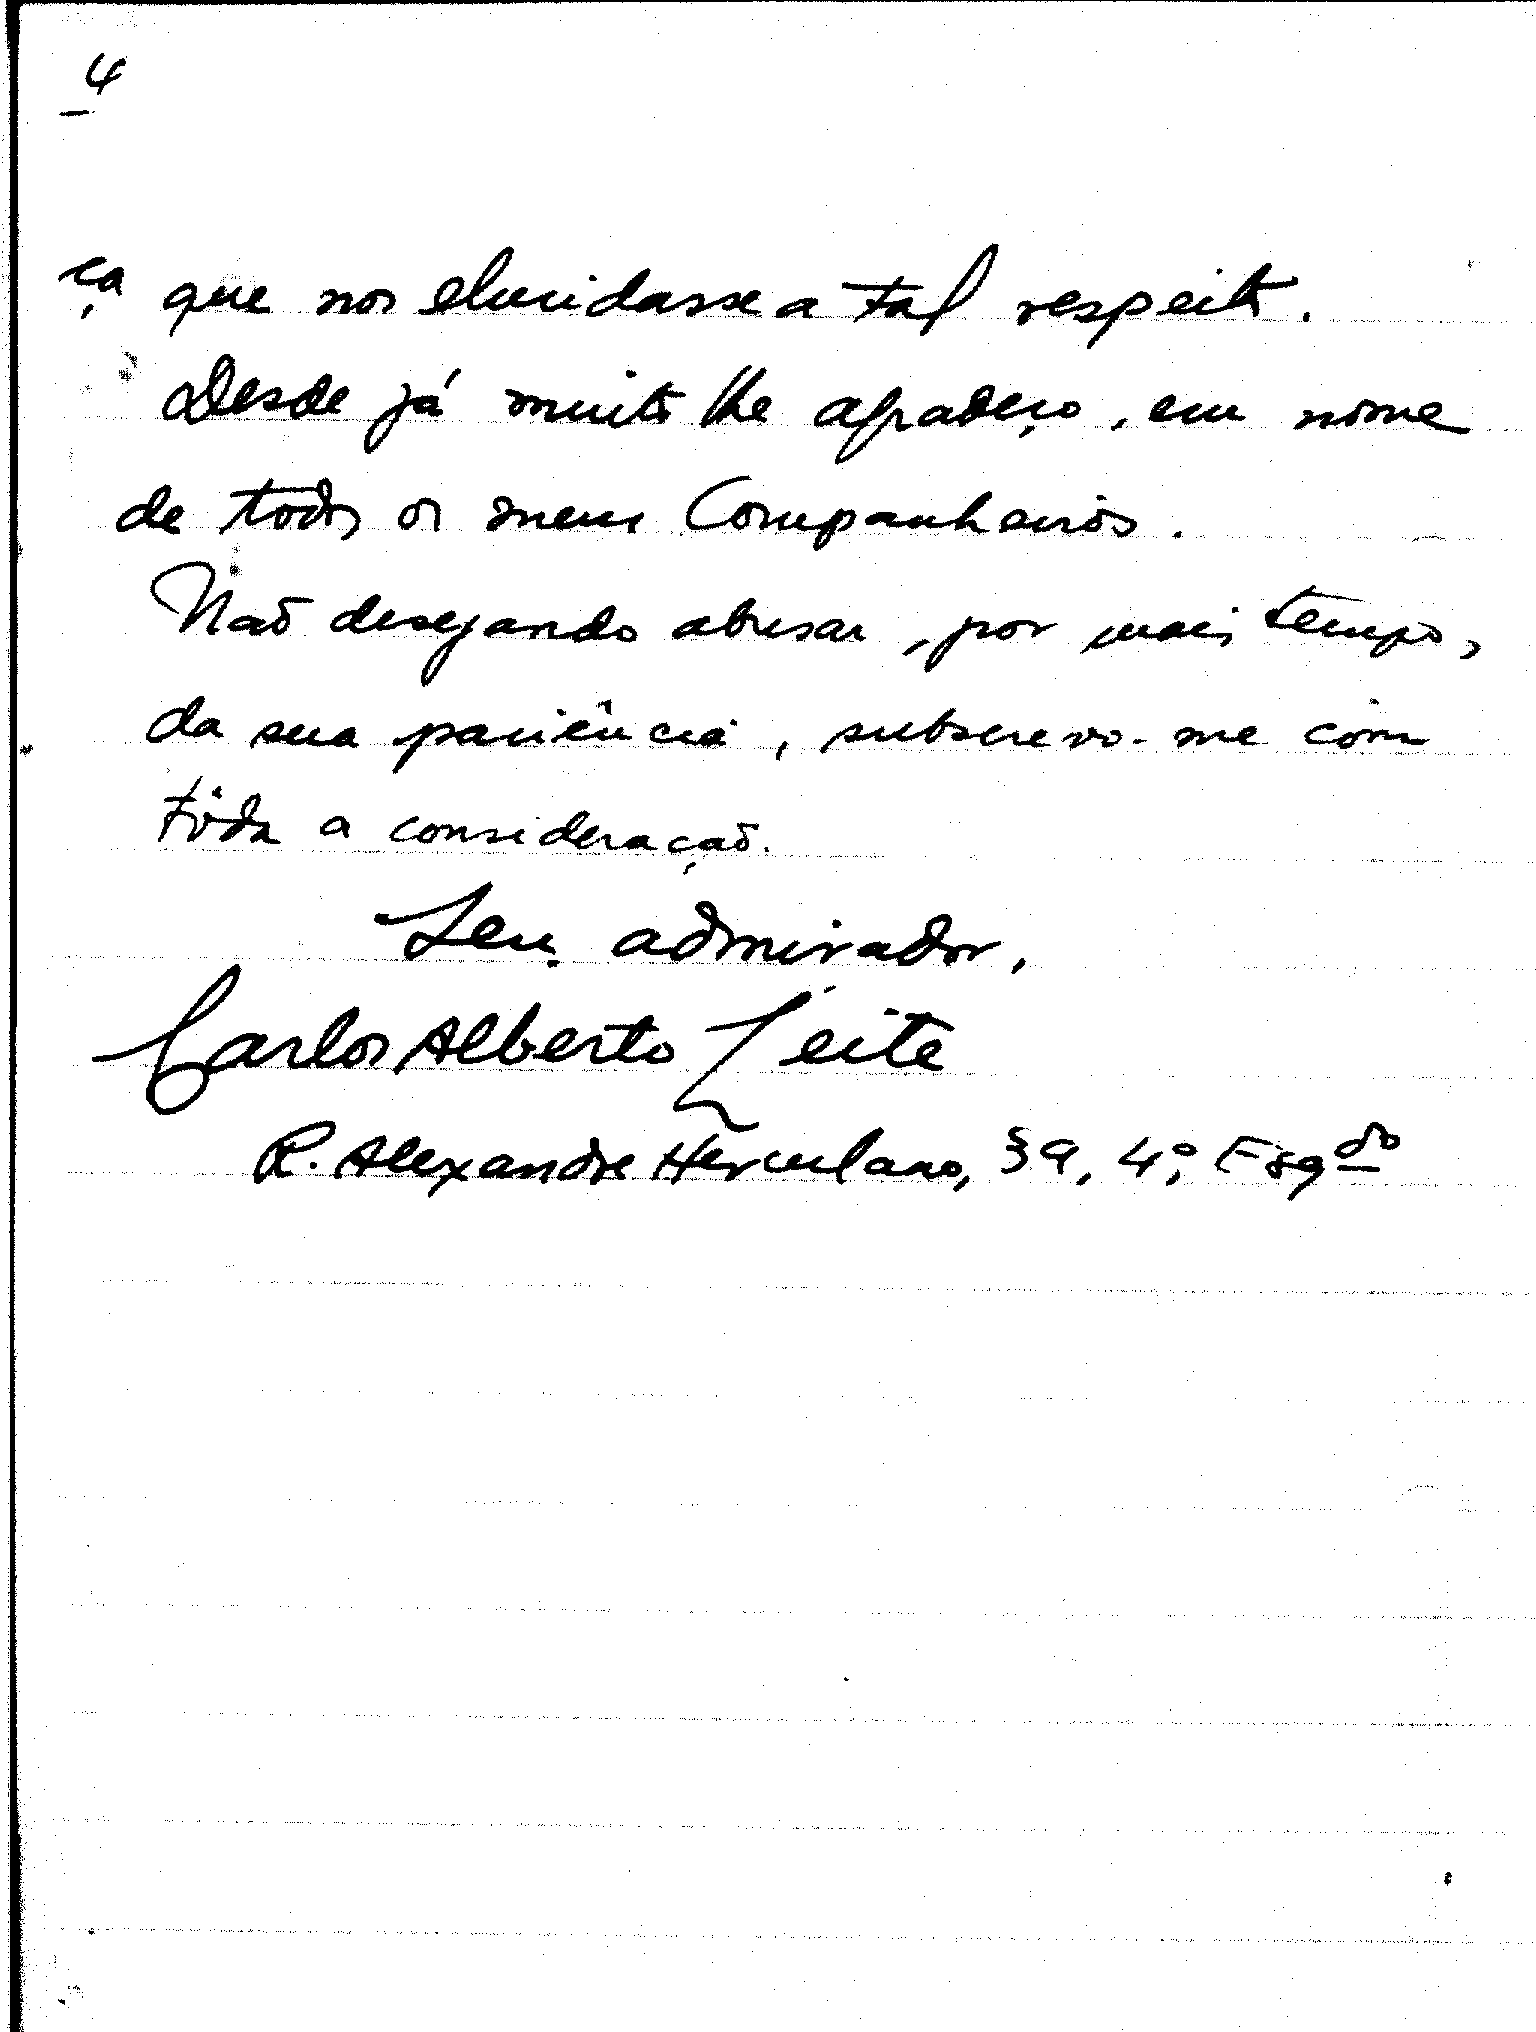 4
ça que nos elucidasse a tal respeito.
Desde já muito lhe agradeço, em nome
de todos os meus Companheiros.
Não desejando abusar, por mais tempo,
da sua paciência, subscrevo-me com
tôda a consideração.
Seu admirador,
Carlos Alberto Leite
R. Alexandre Herculano, 39, 4º, Esqdo